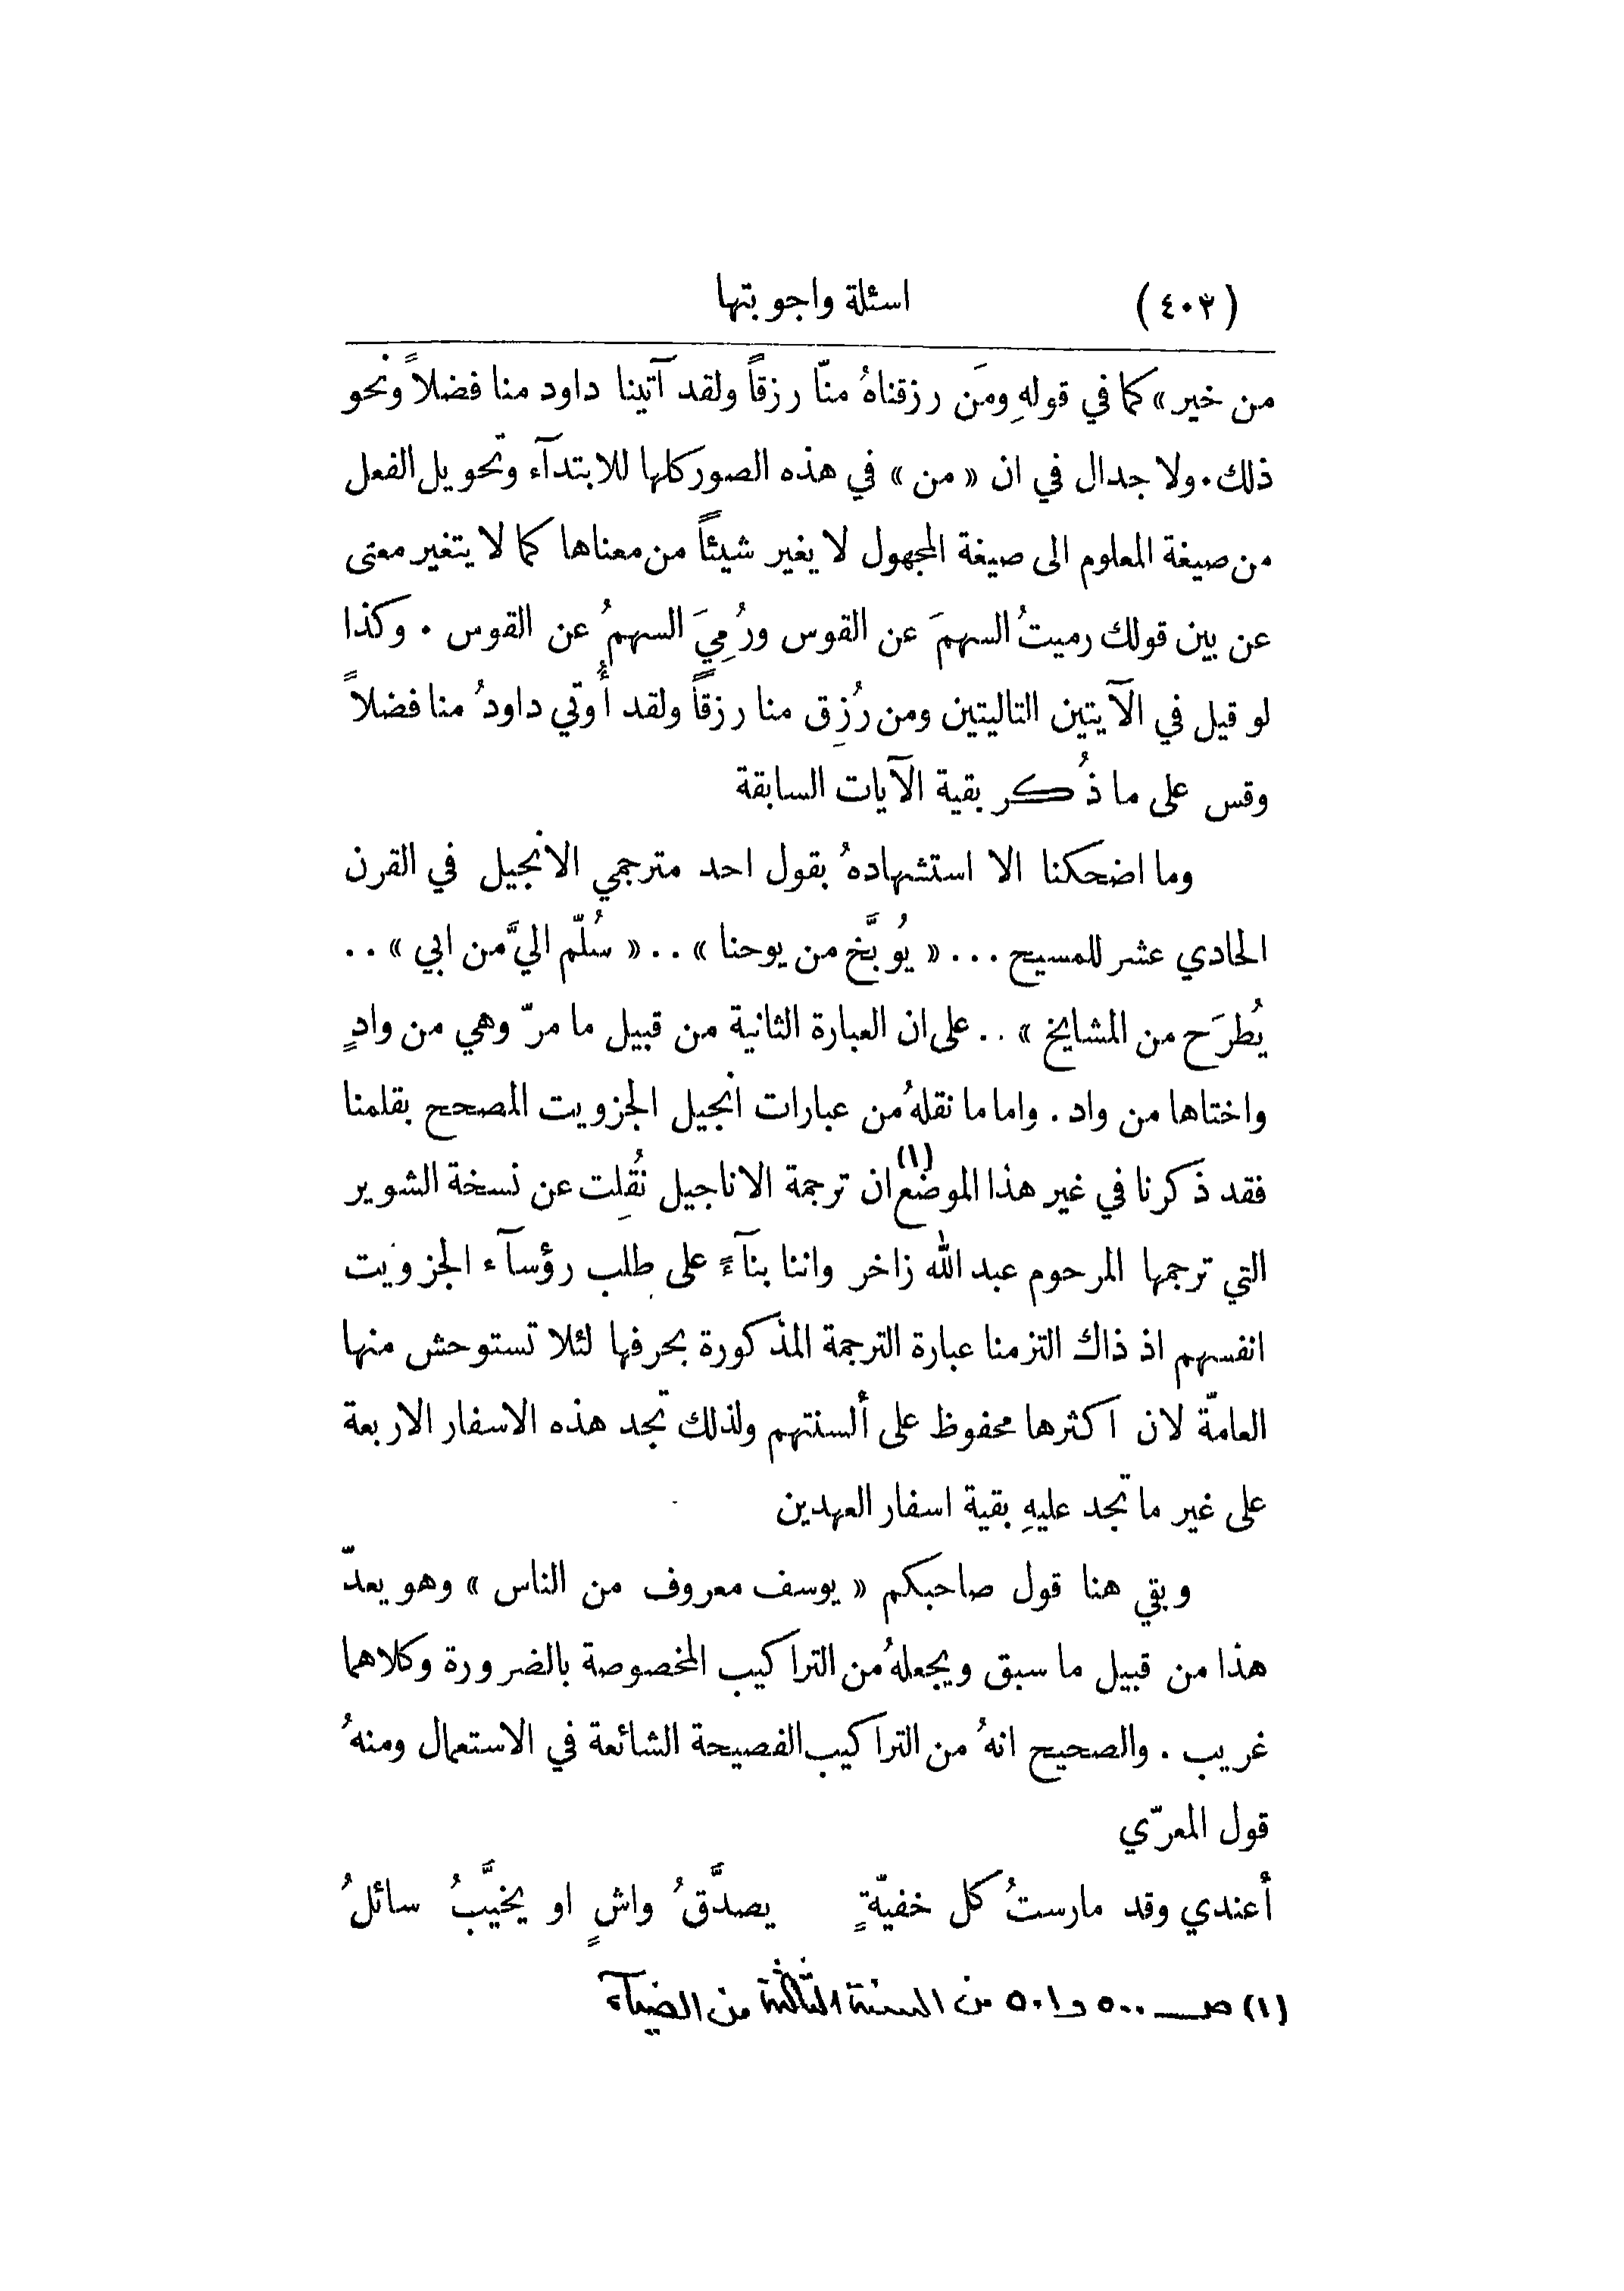 (٤٠٣) اسئلة واجوبتها
من خير» كما في قولهِ ومَن رزقناهُ منّا رزقاً ولقد آتينا داود منا فضلاً ونحو
ذلك. ولا جدال في ان «من» في هذه الصور كلها للابتدآء وتحويل الفعل
من صيغة المعلوم الى صيغة المجهول لا يغير شيئاً من معناها كما لا يتغير معنى
عن بين قولك رميتُ السهمَ عن القوس ورُمِيَ السهمُ عن القوس . وكذا
لو قيل في الآيتين التاليتين ومن رُزِق منا رزقاً ولقد أُوتي داودُ منا فضلاً
وقس على ما ذُكر بقية الآيات السابقة
وما اضحكنا الا استشهادهُ بقول احد مترجمي الانجيل في القرن
الحادي عشر للمسيح ... «يُوبَّخ من يوحنا» .. «سُلّم اليَّ من ابي» ..
يُطرَح من المشايخ» .. على ان العبارة الثانية من قبيل ما مرّ وهي من وادٍ
واختاها من واد . واما ما نقلهُ من عبارات انجيل الجزويت المصحح بقلمنا
فقد ذكرنا في غير هذا الموضع(١) ان ترجمة الاناجيل نُقِلت عن نسخة الشوير
التي ترجمها المرحوم عبد الله زاخر واننا بنآءً على طلب رؤسآء الجزويت
انفسهم اذ ذاك التزمنا عبارة الترجمة المذكورة بحرفها لئلا تستوحش منها
العامّة لان اكثرها محفوظ على ألسنتهم ولذلك تجد هذه الاسفار الاربعة
على غير ما تجد عليهِ بقية اسفار العهدين
وبقي هنا قول صاحبكم «يوسف معروف من الناس» وهو يعدّ
هذا من قبيل ما سبق ويجعلهُ من التراكيب المخصوصة بالضرورة وكلاهما
غريب . والصحيح انهُ من التراكيب الفصيحة الشائعة في الاستعمال ومنهُ
قول المعرّي
أعندي وقد مارستُ كل خفيّةٍ يصدَّقُ واشٍ او يخيَّبُ سائلُ
(١) صـ ٥٠٠ و٥٠١ من السنة الثالثة من الضيآء